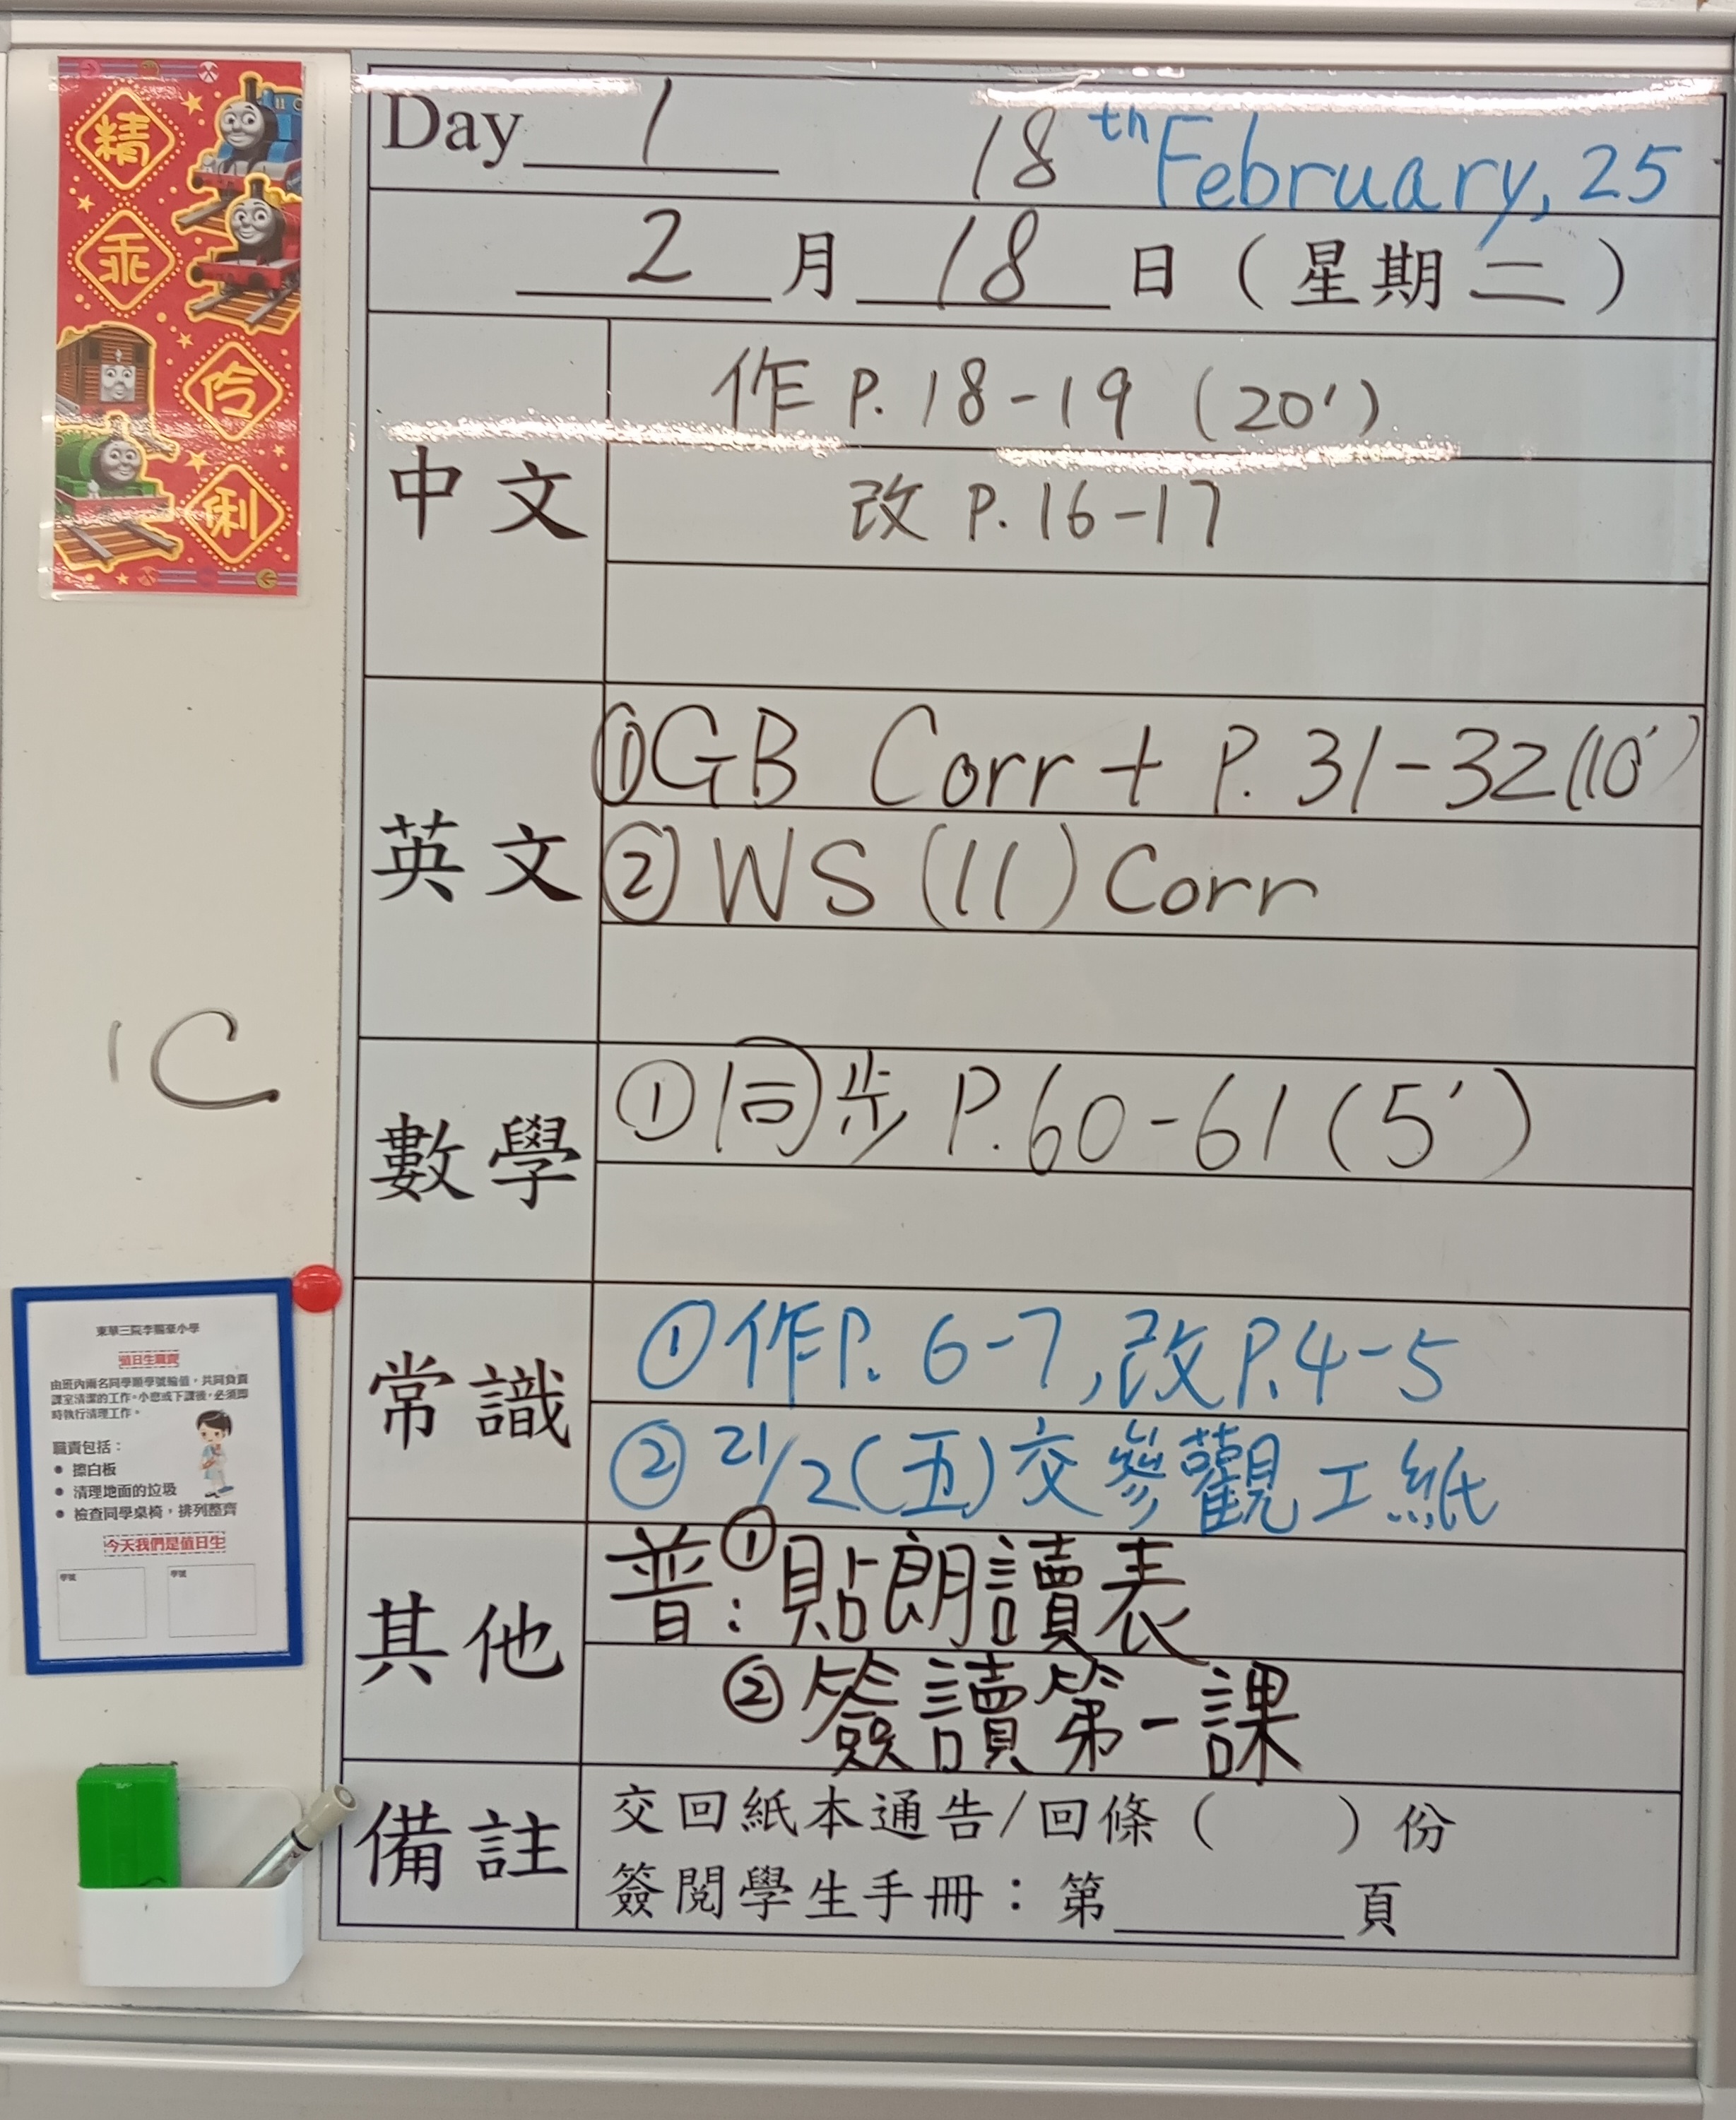 精
乖
伶
俐
Day 1 18th February, 25
2 月 18 日 ( 星期二 )
中文
作 P. 18-19 (20')
改 P. 16-17
英文
①GB Corr + P. 31-32(10')
② WS (11) Corr
1C
數學
①同步 P. 60-61 (5')
常識
①作P. 6-7, 改P.4-5
② 21/2 (五) 交參觀工紙
其他
普:①貼朗讀表
②簽讀第一課
備註
交回紙本通告/回條 ( ) 份
簽閱學生手冊：第 頁
東華三院李賜豪小學
值日生職責
由班內兩名同學順學號輪值，共同負責
課室清潔的工作。小息或下課後，必須即
時執行清理工作。
職責包括：
• 擦白板
• 清理地面的垃圾
• 檢查同學桌椅，排列整齊
今天我們是值日生
學號 學號